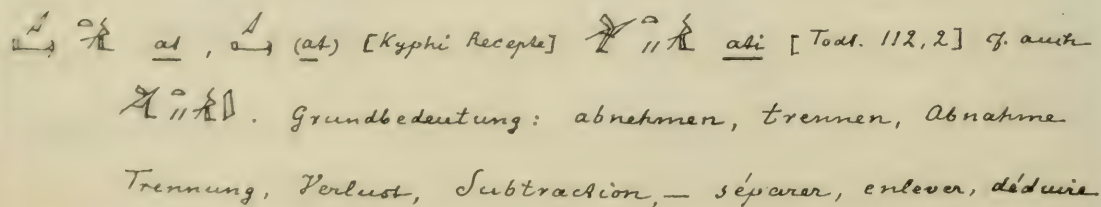 at, (at) [Kyphi Recepte] ati [Todt. 112,2] cf. auch
. Grundbedeutung: abnehmen, trennen, Abnahme
Trennung, Verlust, Subtraction, — séparer, enlever, déduire